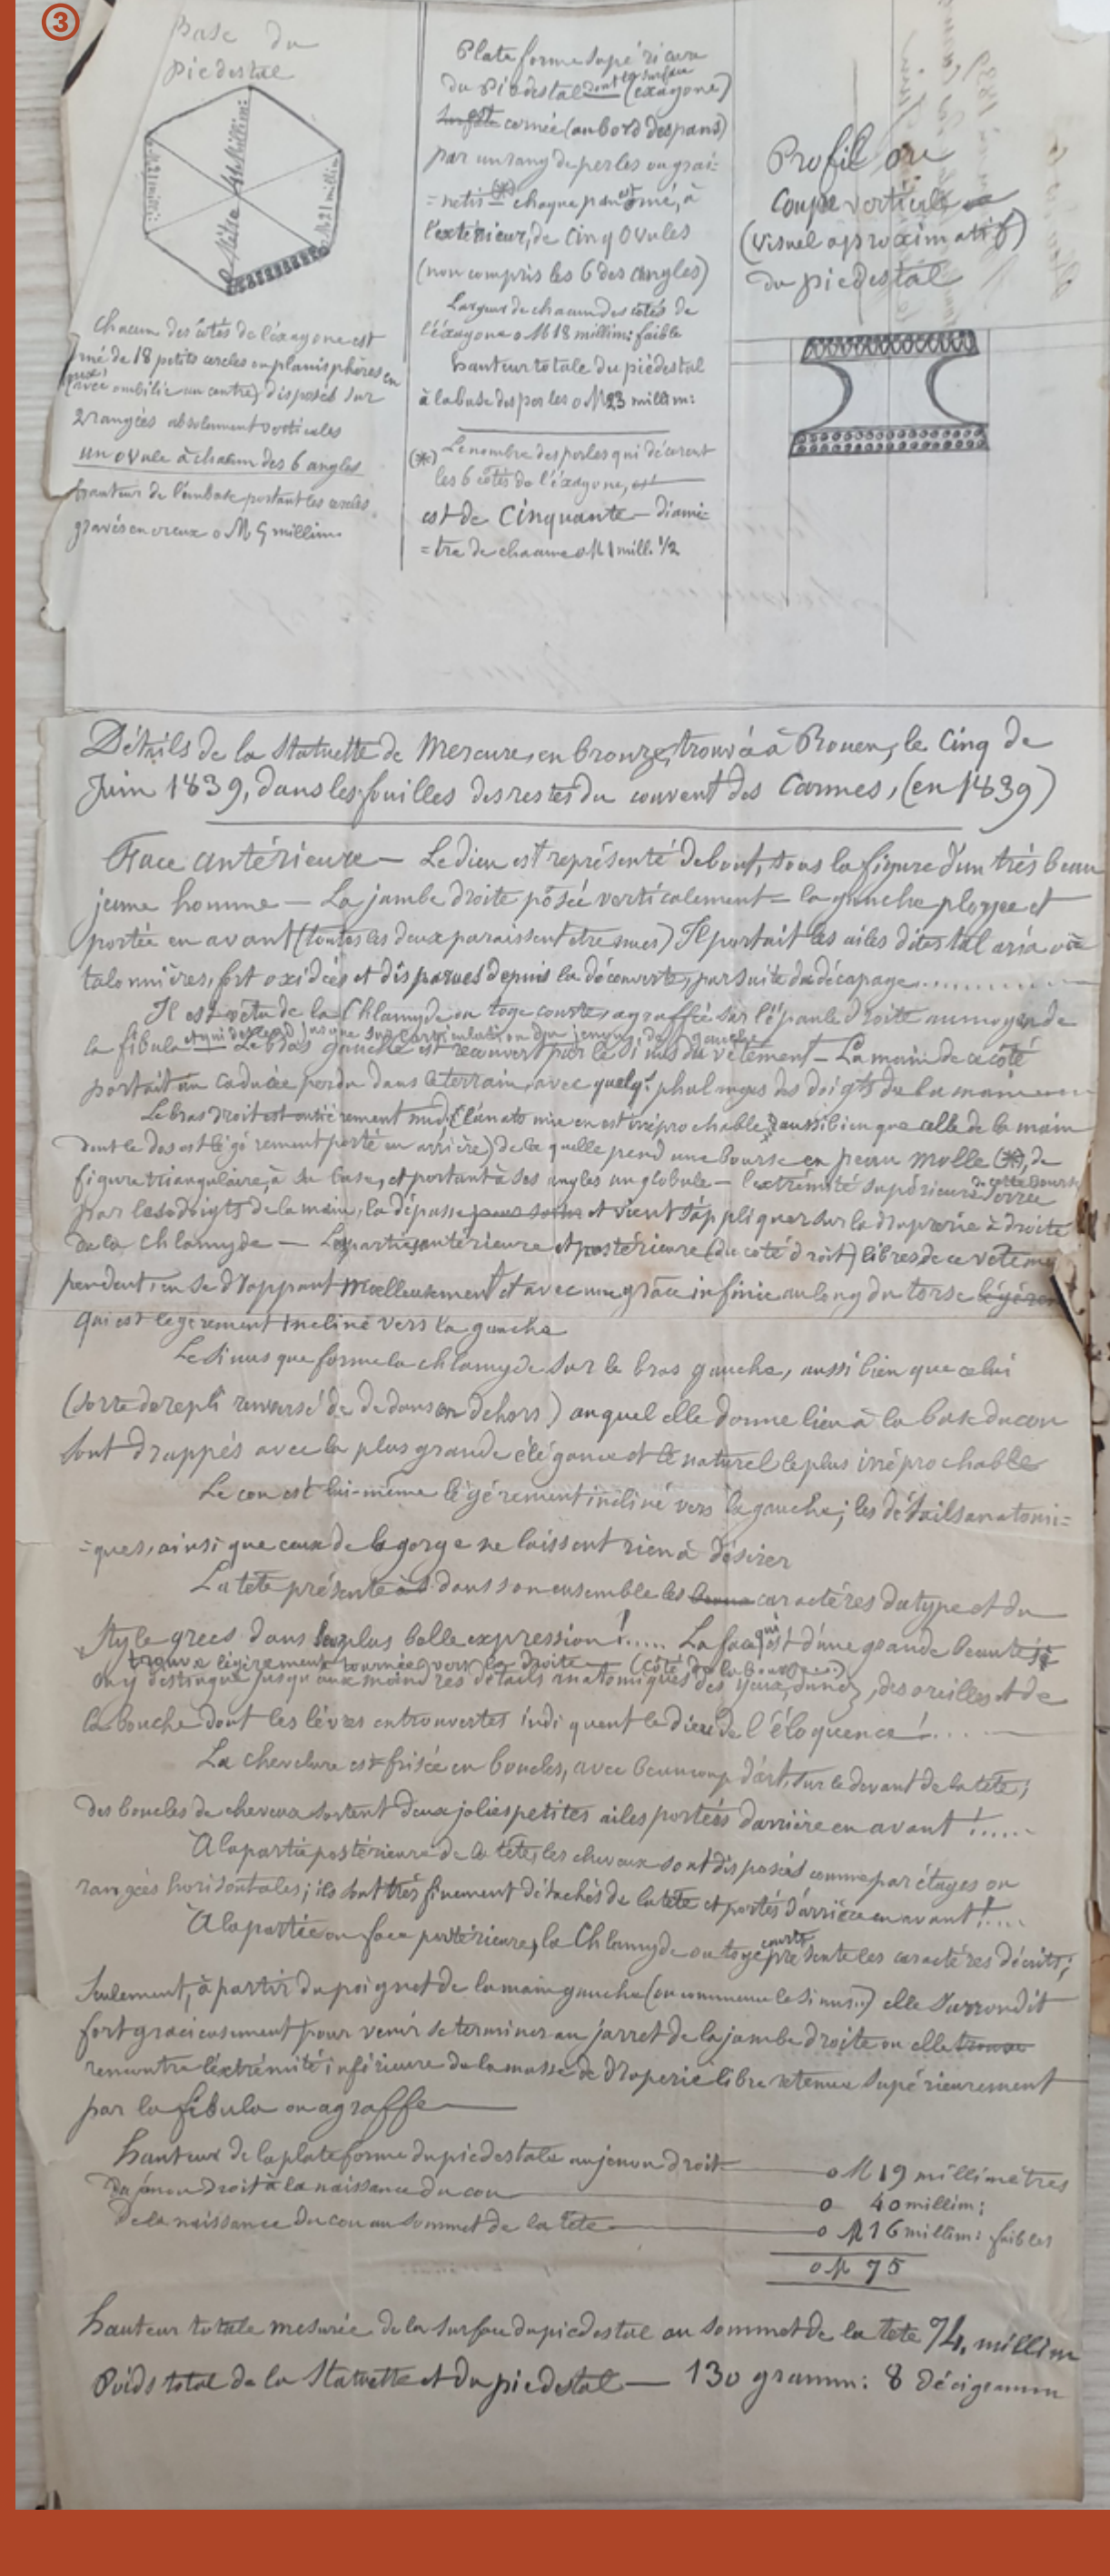 3
Base du
piedestal
0M21 millim:
0 Mètre 44 Millim:
0M21 millim
Chacun des côtés de l'éxagone est
orné de 18 petits cercles ou planisphères en
creux (avec ombilic au centre) disposés sur
2 rangées absolument verticales
un ovule à chacun des 6 angles
hauteur de l'embase portant les cercles
gravés en creux 0 M 5 millim.
Plate forme supérieure
du Piédestal dont la surface (exagone)
surface ornée (au bord des pans)
par un rang de perles ou grai=
=netis (*) chaque pan est orné, à
l'extérieur, de cinq Ovules
(non compris les 6 des angles)
Largeur de chacun des cotés de
l'éxagone 0 M 18 millim: faible
hauteur totale du piédestal
à la base des perles 0 M 23 millim:
(*) Le nombre des perles qui décorent
les 6 côtés de l'éxagone, est
est de Cinquante — diamè
=tre de chacune 0 M 1 mill. 1/2
Profil ou
Coupe verticale
(visuel aproximatif)
du piedestal
Détails de la Statuette de Mercure, en bronze, trouvée à Rouen, le Cinq de
Juin 1839, dans les fouilles des restes du couvent des Carmes, (en 1839)
Face antérieure — Le dieu est représenté debout, sous la figure d'un très beau
jeune homme — La jambe droite pôsée verticalement = la gauche ployee et
portée en avant (toutes les deux paraissent etre nues) Il portait les ailes dites talaria ou
talonnières, fort oxidées et disparues depuis la découverte, par suite du décapage
Il est vêtu de la Chlamyde ou toge courte, agraffée sur l'épaule droite au moyen de
et qui descend jusque sur l'articulation du genou, de gauche
la fibula — Le bras gauche est recouvert par le sinus du vêtement — La main de ce côté
portait un caducée perdu dans le terrain, avec quelqs phalanges des doigts de la main
Le bras droit est entièrement nud, (l'anatomie en est irréprochable, aussi bien que celle de la main
dont le dos est légérement porté en arrière) de laquelle pend une bourse en peau molle (*), de
figure triangulaire, à sa base, et portant à ses angles un globule — l'extrémité supérieure de cette bourse serrée
par les doigts de la main, la dépasse et vient s'appliquer sur la draperie à droite
de la chlamyde — Les parties antérieure et postérieure (du coté droit) libres de ce vêteme
pendent, en se drappant moelleusement et avec une grâce infinie au long du torse légérem
qui est légérement incliné vers la gauche
Le sinus que forme la chlamyde sur le bras gauche, aussi bien que celui
(sorte de repli renversé de dedans en dehors) auquel elle donne lieu à la base du cou
sont drappés avec la plus grande élégance et le naturel le plus irréprochable
Le cou est lui-même légérement incliné vers la gauche; les détails anatomi=
=ques, ainsi que ceux de la gorge ne laissent rien à désirer
La tête présente dans son ensemble les caractères du type et du
style grecs dans la plus belle expression !..... La face qui est d'une grande beauté se
trouve légérement tournée vers la droite — (côté de la bourse...)
on y distingue jusqu'aux moindres détails anatomiques des yeux, du nez, des oreilles et de
la bouche dont les lèvres entrouvertes indiquent le dieu de l'éloquence !....
La chevelure est frisée en boucles, avec beaucoup d'art, sur le devant de la tête;
des boucles de cheveux sortent deux jolies petites ailes portées d'arrière en avant !.....
A la partie postérieure de la tête, les cheveux sont disposés comme par étages ou
rangées horisontales; ils sont très finement détachés de la tête et portés d'arrière en avant !....
A la partie ou face postérieure, la Chlamyde ou toge courte présente les caractères décrits;
Seulement, à partir du poignet de la main gauche (ou commence le sinus..) elle s'arrondit
fort gracieusement pour venir se terminer au jarret de la jambe droite ou elle trouve
rencontre l'extrémité inférieure de la masse de draperie libre retenue supérieurement
par la fibula ou agraffe
hauteur de la plateforme du piedestale au jenou droit — 0 M 19 millimètres
du jénou droit à la naissance du cou — 0 40 millim:
De la naissance du cou au sommet de la tête — 0 M 16 millim: faibles
0 M 75
hauteur totale mesurée de la surface du piedestal au sommet de la tete 74 millim
Poids total de la Statuette et du piedestal — 130 gramm: 8 décigramm